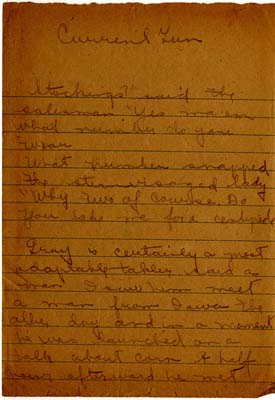 Current Fun
Stockings?" said the
salesman "Yes ma'am
what number do you
wear
What number snapped
the stern visaged lady
"Why two of course. Do
you take me for a centipede
Gray is certainly a most
adaptable talker said a
man I saw him meet
a man from Iowa the
other day and in a moment
he was launched on a
talk about corn A half
hour afterward he met